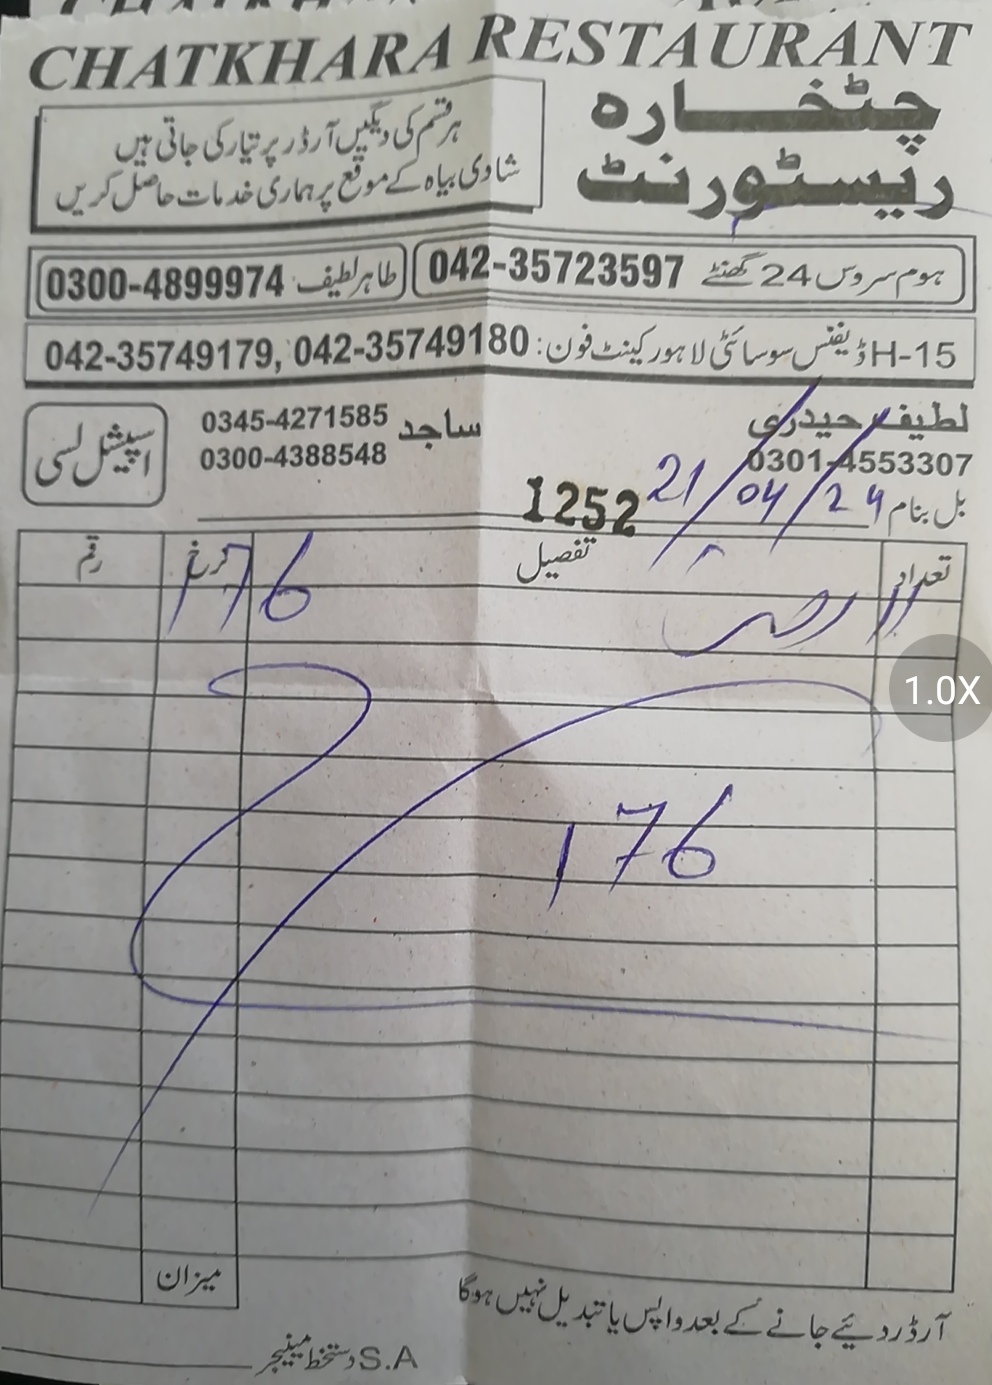 CHATKHARA RESTAURANT
چٹخارہ
ریسٹورنٹ
ہر قسم کی دیگیں آرڈر پر تیار کی جاتی ہیں
شادی بیاہ کے موقع پر ہماری خدمات حاصل کریں
ہوم سروس 24 گھنٹے 042-35723597
طاہر لطیف 0300-4899974
15-H ڈیفنس سوسائٹی لاہور کینٹ فون: 042-35749179, 042-35749180
لطیف حیدری
0301-4553307
ساجد 0345-4271585
0300-4388548
اسپیشل لسی
بل بنام 21/04/24
1252
تعداد تفصیل نرخ رقم
11 176
176
میزان
آرڈر دئیے جانے کے بعد واپس یا تبدیل نہیں ہوگا
دستخط مینیجر S.A
1.0X